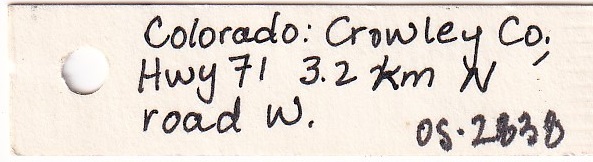 Colorado: Crowley Co;
Hwy 71 3.2 km N
road W.
OS-2838